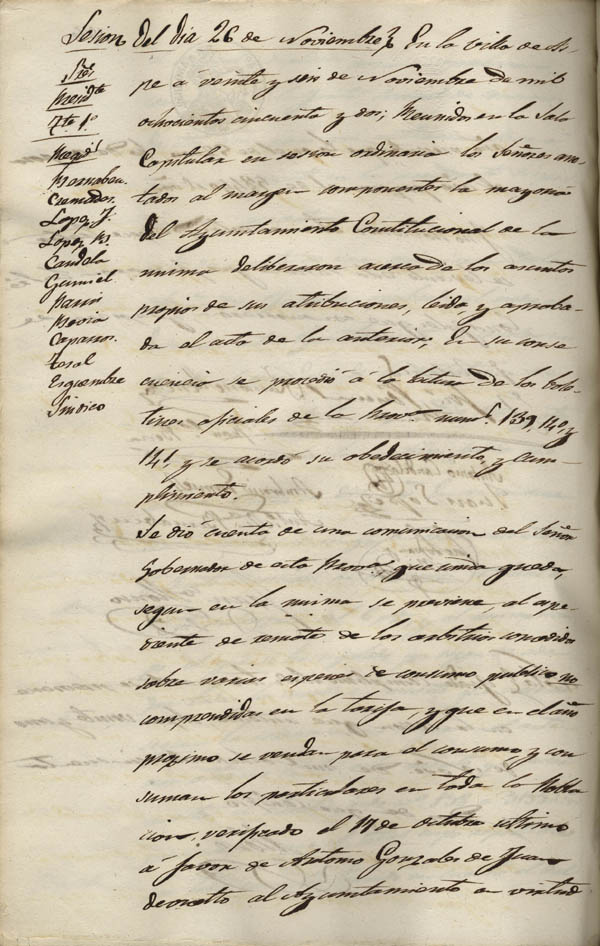 Sesion del dia 26 de Noviembre En la villa de As-
Sres
Presidte
Tte 1º
Regid.s
Bernabeu
Cremades
Lopez J.
Lopez B.
Candela
Gumiel
Pavia
Caparros
Teral
Sindico
pe á veinte y seis de Noviembre de mil
ochocientos cincuenta y dos; Reunidos en la Sala
Capitular en sesion ordinaria los Señores ano-
tados al margen componentes la mayoria
del Ayuntamiento Constitucional de la
misma deliberaron acerca de los asuntos
propios de sus atribuciones, leida, y aproba-
da el acta de la anterior; En su conse
cuencia se procedió á la letura de los bole-
tines oficiales de la Prov.a num.s 139, 140, y
141, y se acordó su obedecimiento, y cum-
plimiento.
Se dió cuenta de una comunicacion del Señor
Gobernador de esta Prova. que unida queda,
segun en la misma se previene, al espe-
diente de remate de los arbitrios concedidos
sobre varias especies de consumo publico no
comprendidas en la tarifa, y que en el año
proximo se vendan para el consumo, y con
suman los particulares en toda la Pobla
cion, verificado el 17 de Octubre ultimo
á favor de Antonio Gonzales de Juan
devuelto al Ayuntamiento en virtud